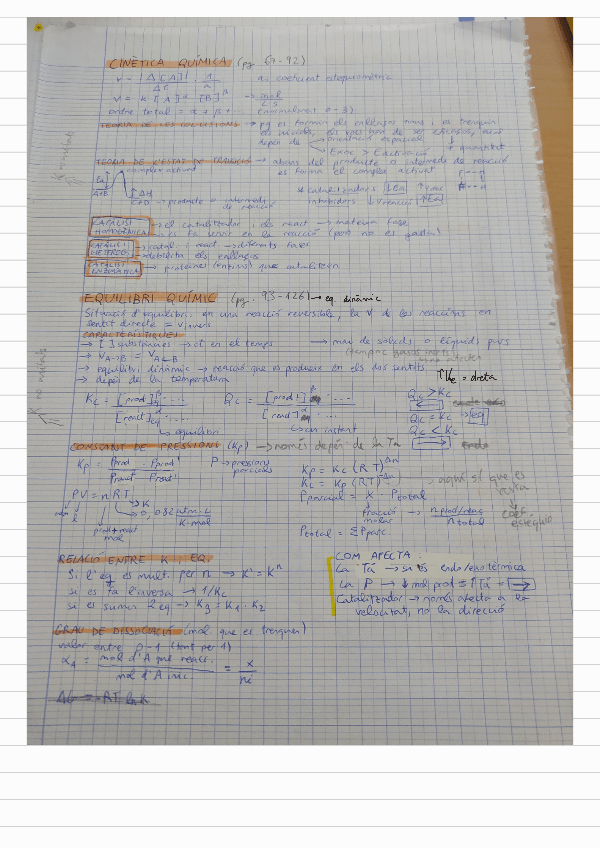 CINÈTICA QUÍMICA (pg. 67-92)
v = |Δ[A]| / Δt · 1/a
a: coeficient estequiomètric
v = k [A]^α · [B]^β → mol / L·s
ordre total = α + β + (normalment 0-3)
TEORIA DE LES COL·LISIONS → pq es formin els enllaços nous, es trenquin
els vells, els xocs han de ser eficaços, això
depèn de orientació espacial
Exoc > Eactivació quantitat
TEORIA DE L'ESTAT DE TRANSICIÓ → abans del producte o intermedis de reacció
complex activat
es forma el complex activat
Ea
A+B
ΔH
C+D → producte o intermedis
de reacció
* catalitzadors ↓Ea ↑vreac
inhibidors ↓vreacció ↑Ea
CATÀLISI
HOMOGÈNIA
→ el catalitzador i els react → mateixa fase
→ es fa servir en la reacció (però no es gasta)
CATÀLISI
HETEROG.
→ catal. i react → diferents fases
→ debilita els enllaços
CATÀLISI
ENZIMÀTICA
→ proteïnes (enzims) que catalitzen
EQUILIBRI QUÍMIC (pg. 93-126) → eq. dinàmic
Situació d'equilibri: en una reacció reversible, la v de les reaccions en
sentit directe = v invers
CARACTERÍSTIQUES
→ [ ] substàncies → ct en el temps → mai de sòlids o líquids purs
(tampoc gasos inerts)
→ vA→B = vA←B
→ equilibri dinàmic → reacció que es produeix en els dos sentits
→ depèn de la temperatura
↑Ke = dreta
Kc = [prod]eq · .... / [react]eq · ....
→ equilibri
Qc = [prod] · .... / [react] · ....
→ en un instant
Qc > Kc
←
Qc = Kc eq
Qc < Kc
→
CONSTANT DE PRESSIONS (Kp) → només depèn de la Ta
Kp = Pprod · Pprod' / Preact · Preact'
P → pressions
parcials
Kp = Kc (RT)^Δn
Kc = Kp (RT)^-Δn → aquí sí que es
resta
coef.
estequio
PV = nRT
atm l K
prod+react
mol
0,082 atm·L / K·mol
Pparcial = X · Ptotal
fracció
molar → n prod/reac / n total
Ptotal = ΣPparc.
RELACIÓ ENTRE K i EQ.
Si l'eq es mult. per n → K' = K^n
si es fa l'inversa → 1/Kc
si es sumen 2 eq → K3 = K1 · K2
COM AFECTA:
La Ta → si és endo/exotèrmica
La P → ↓ mol prod = ↑Ta = →
Catalitzador → només afecta a la
velocitat, no la direcció
GRAU DE DISSOCIACIÓ (mol que es trenquen)
valor entre 0-1 (tant per 1)
αA = mol d'A que reacc. / mol d'A inic. = x / ni
ΔG = -RT ln k